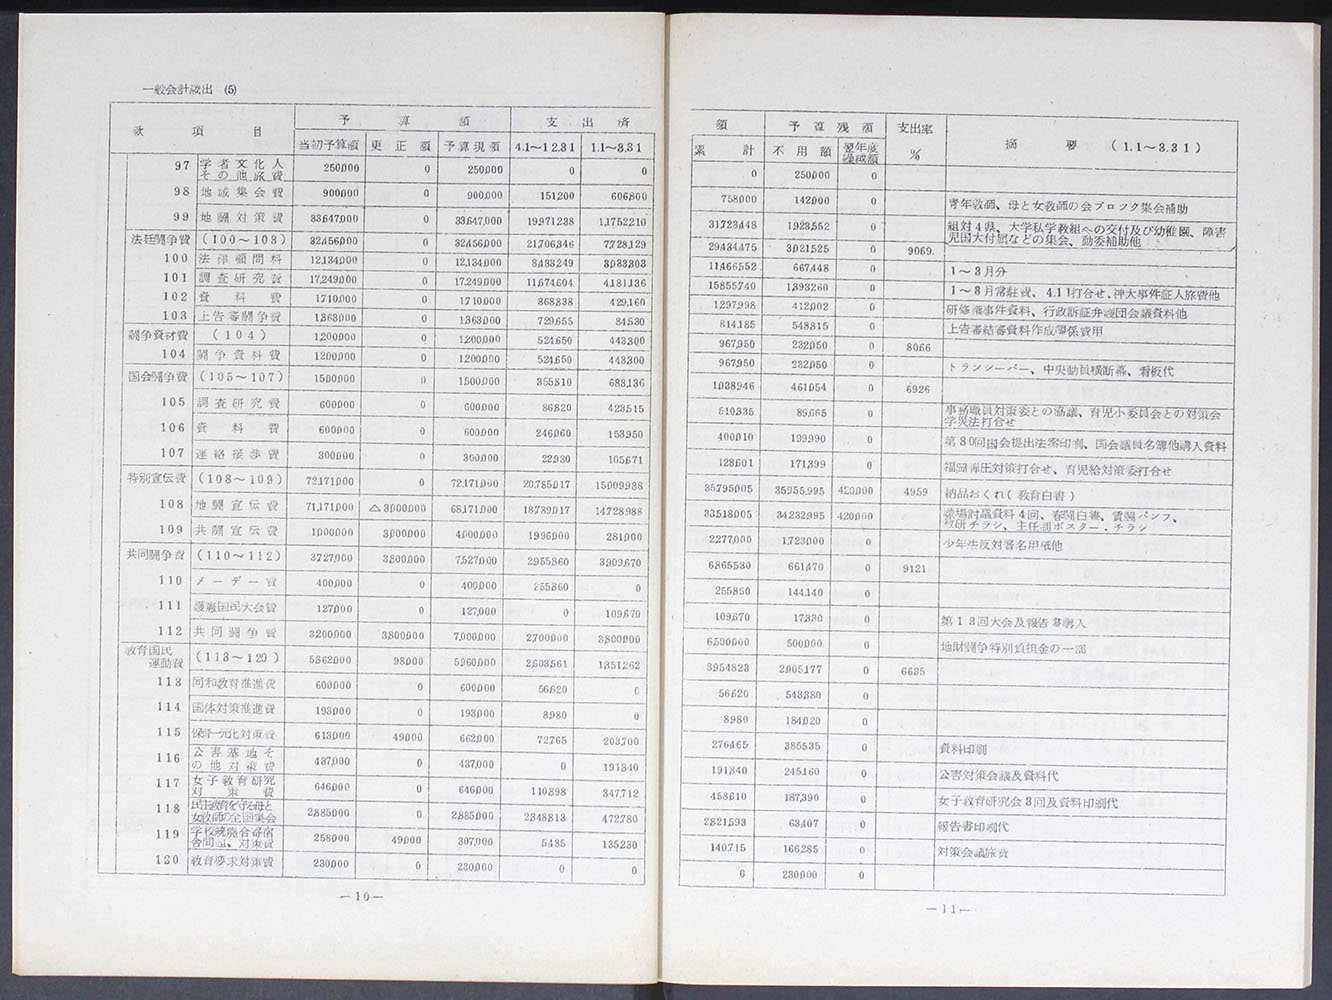 一般会計歳出 (5)
款 項 目 予 算 額 支 出 済
当初予算額 更 正 額 予算現額 4.1～12.31 1.1～3.31
97 学者文化人その他旅費 250,000 0 250,000 0 0
98 地域集会費 900,000 0 900,000 151,200 606,800
99 地闘対策費 33,647,000 0 33,647,000 19,971,238 11,752,210
法廷闘争費 (100～103) 32,456,000 0 32,456,000 21,706,346 7,728,129
100 法律顧問料 12,134,000 0 12,134,000 8,433,249 3,033,303
101 調査研究費 17,249,000 0 17,249,000 11,674,604 4,181,136
102 資料費 1,710,000 0 1,710,000 868,838 429,160
103 上告審闘争費 1,363,000 0 1,363,000 729,655 84,530
闘争資材費 (104) 1,200,000 0 1,200,000 524,650 443,300
104 闘争資料費 1,200,000 0 1,200,000 524,650 443,300
国会闘争費 (105～107) 1,500,000 0 1,500,000 355,810 683,136
105 調査研究費 600,000 0 600,000 86,820 423,515
106 資料費 600,000 0 600,000 246,060 153,950
107 連絡接渉費 300,000 0 300,000 22,930 105,671
特別宣伝費 (108～109) 72,171,000 0 72,171,000 20,785,017 15,009,988
108 地闘宣伝費 71,171,000 △3,000,000 68,171,000 18,789,017 14,728,988
109 共闘宣伝費 1,000,000 3,000,000 4,000,000 1,996,000 281,000
共同闘争費 (110～112) 3,727,000 3,800,000 7,527,000 2,955,860 3,909,670
110 メーデー費 400,000 0 400,000 255,860 0
111 護憲国民大会費 127,000 0 127,000 0 109,670
112 共同闘争費 3,200,000 3,800,000 7,000,000 2,700,000 3,800,000
教育国民運動費 (113～120) 5,862,000 98,000 5,960,000 2,603,561 1,351,262
113 同和教育推進費 600,000 0 600,000 56,620 0
114 国体対策推進費 193,000 0 193,000 8,980 0
115 保幼一元化対策費 613,000 49,000 662,000 72,765 203,700
116 公害基地その他対策費 437,000 0 437,000 0 191,840
117 女子教育研究対策費 646,000 0 646,000 110,898 347,712
118 民主教育を守る母と女教師の全国集会 2,885,000 0 2,885,000 2,348,813 472,780
119 学校統廃合寄宿舎問題、対策費 258,000 49,000 307,000 5,485 135,230
120 教育要求対策費 230,000 0 230,000 0 0
―10―
額 予算残額 支出率 摘 要 (1.1～3.31)
累 計 不用額 翌年度繰越額 %
0 250,000 0
758,000 142,000 0 青年教師、母と女教師の会ブロック集会補助
31,723,448 1,923,552 0 組対4県、大学私学教組への交付及び幼稚園、障害児国大付属などの集会、動委補助他
29,434,475 3,021,525 0 90.69
11,466,552 667,448 0 1～3月分
15,855,740 1,393,260 0 1～3月常駐費、4.11打合せ、神大事件証人旅費他
1,297,998 412,002 0 研修権事件資料、行政訴訟弁護団会議資料他
814,185 548,815 0 上告審結審資料作成関係費用
967,950 232,050 0 80.66
967,950 232,050 0 トランシーバー、中央動員横断幕、看板代
1,038,946 461,054 0 69.26
510,335 89,665 0 事務職員対策委との協議、育児小委員会との対策会 学災法打合せ
400,010 199,990 0 第80回国会提出法案印刷、国会議員名簿他購入資料
128,601 171,399 0 福岡弾圧対策打合せ、育児給対策委打合せ
35,795,005 35,955,995 420,000 49.59 納品おくれ(教育白書)
33,518,005 34,232,995 420,000 職場討議資料4回、春闘白書、賃闘パンフ、教研チラシ、主任制ポスター・チラシ
2,277,000 1,723,000 0 少年法反対署名用紙他
6,865,530 661,470 0 91.21
255,860 144,140 0
109,670 17,330 0 第13回大会及報告書購入
6,500,000 500,000 0 地財闘争特別負担金の一部
3,954,823 2,005,177 0 66.35
56,620 543,380 0
8,980 184,020 0
276,465 385,535 0 資料印刷
191,840 245,160 0 公害対策会議及資料代
458,610 187,390 0 女子教育研究会3回及資料印刷代
2,821,593 63,407 0 報告書印刷代
140,715 166,285 0 対策会議旅費
0 230,000 0
―11―